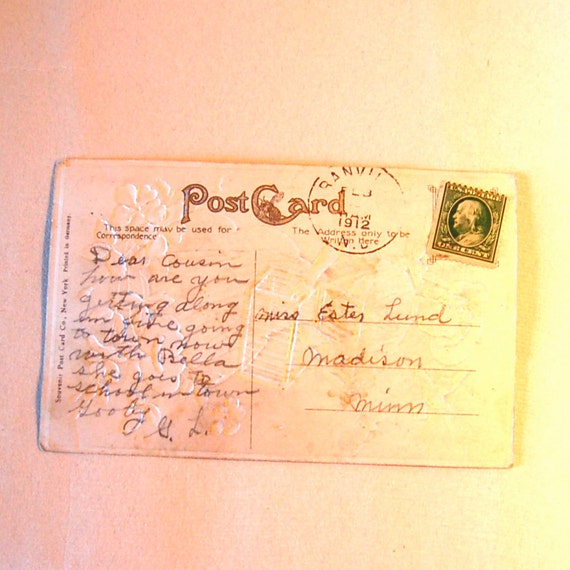 Post Card
This space may be used for
Correspondence
The Address only to be
Written Here
1912
1 CENT
Souvenir Post Card Co., New York Printed in Germany
Dear Cousin
how are you
getting along
going
to town now
with Bella
she goes to
school in town
Gooby
G. L.
Miss Ester Lund
Madison
Minn